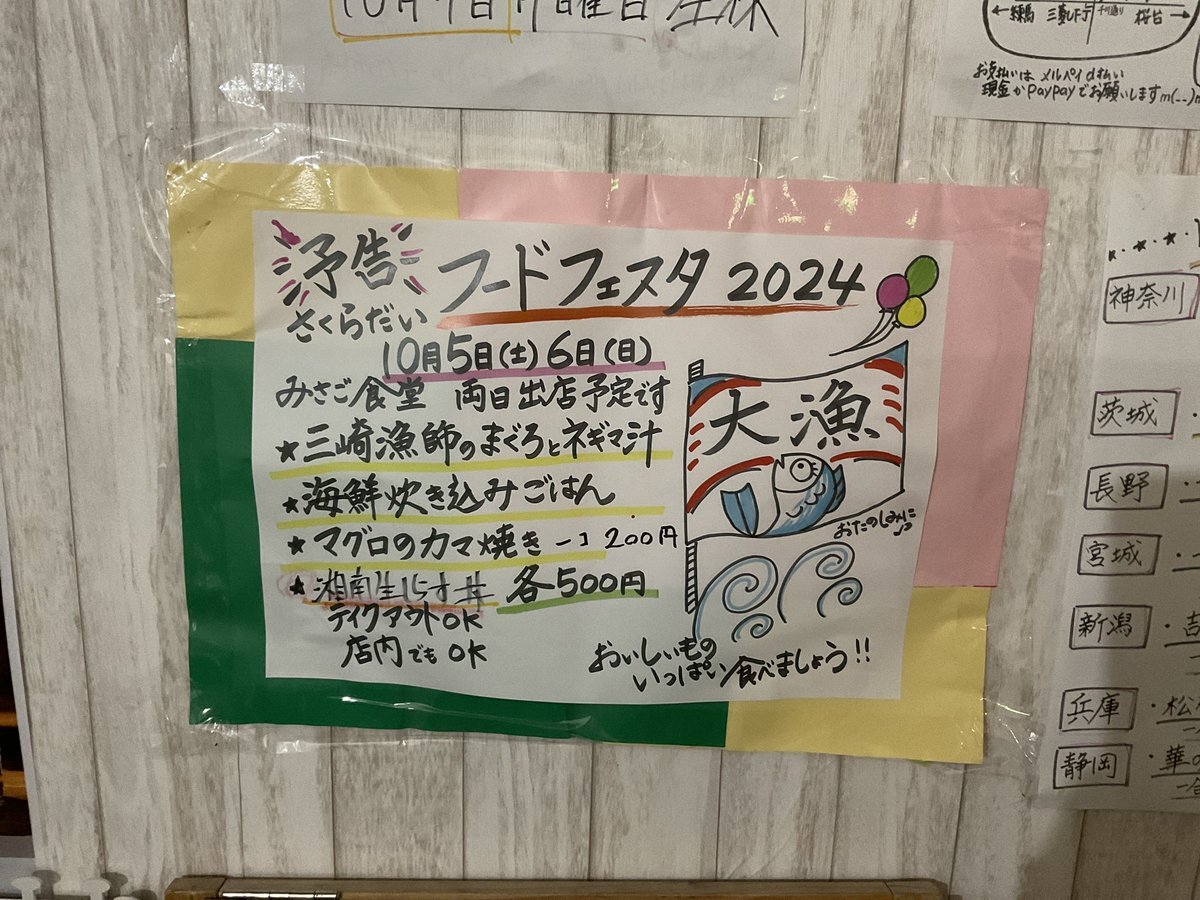 10月7日月曜日
練馬 三菱UFJ 千川通り 桜台
お支払いは メルペイ d払い
現金かpaypayでお願いしますm(__)m
予告
さくらだい フードフェスタ 2024
10月5日(土)6日(日)
みさご食堂 両日出店予定です
★三崎漁師のまぐろとネギマ汁
★海鮮炊き込みごはん
★マグロのカマ焼き 一コ200円
★ 各500円
テイクアウトOK
店内でもOK
大漁
おたのしみに♪
おいしいもの
いっぱい食べましょう!!
神奈川
茨城
長野
宮城
新潟
兵庫 ・松
静岡 ・華の